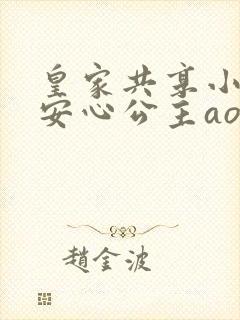 皇家共享小
安心公主ao
趙金波